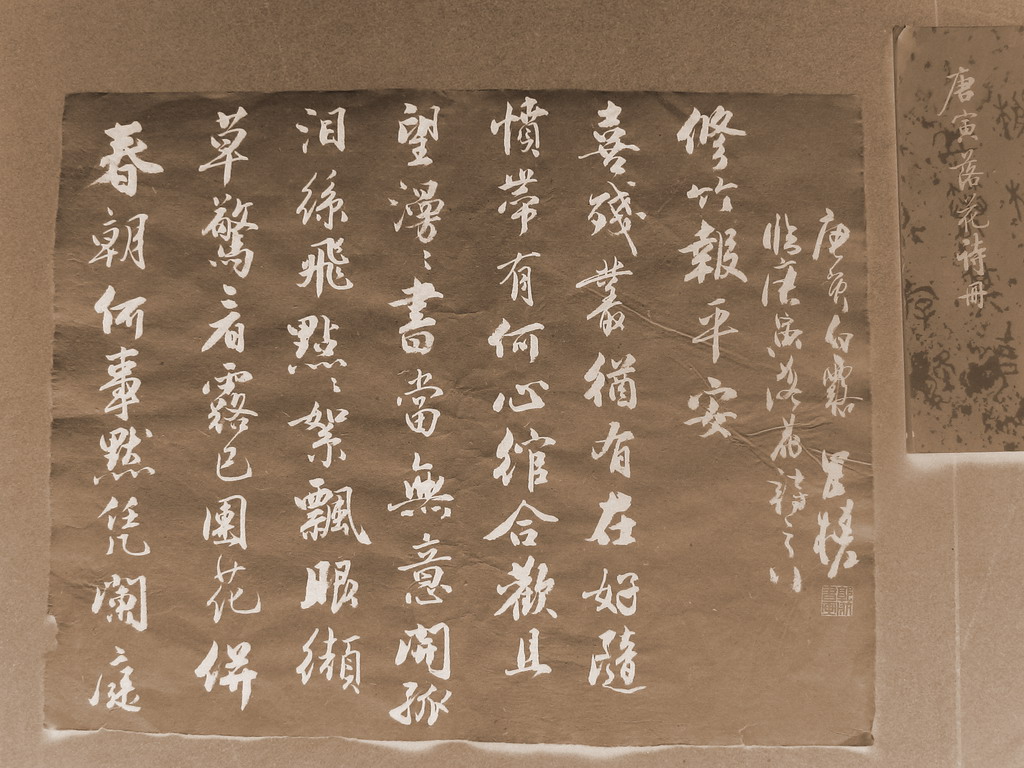 春朝何事默凭闌庭
草驚看露已團花併
泪絲飛點〻絮飄眼纈
望漫〻書當無意開孤
憤帶有何心綰合歡且
喜殘叢猶有在好隨
修竹報平安
臨唐寅落花詩之八
庚寅白露
唐寅落花詩冊